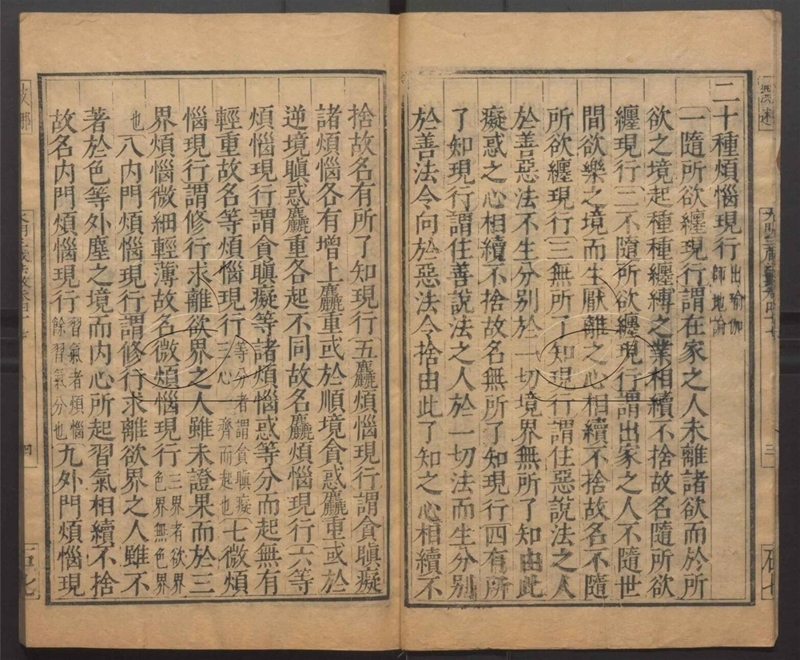 二十種煩惱現行出瑜伽師地論
一隨所欲纏現行謂在家之人未離諸欲而於所
欲之境起種種纏縛之業相續不捨故名隨所欲
纏現行二不隨所欲纏現行謂出家之人不隨世
間欲樂之境而生厭離之心相續不捨故名不隨
所欲纏現行三無所了知現行謂住惡說法之人
於善惡法不生分別於一切境界無所了知由此
癡惑之心相續不捨故名無所了知現行四有所
了知現行謂住善說法之人於一切法而生分別
於善法令向於惡法令捨由此了知之心相續不
捨故名有所了知現行五麤煩惱現行謂貪瞋癡
諸煩惱各有增上麤重或於順境貪惑麤重或於
逆境瞋惑麤重各起不同故名麤煩惱現行六等
煩惱現行謂貪瞋癡等諸煩惱惑等分而起無有
輕重故名等煩惱現行等分者謂貪瞋癡三心一齊而起也七微煩
惱現行謂修行求離欲界之人雖未證果而於三
界煩惱微細輕薄故名微煩惱現行三界者欲界色界無色界
也八內門煩惱現行謂修行求離欲界之人雖不
著於色等外塵之境而內心所起習氣相續不捨
故名內門煩惱現行習氣者煩惱餘習氣分也九外門煩惱現